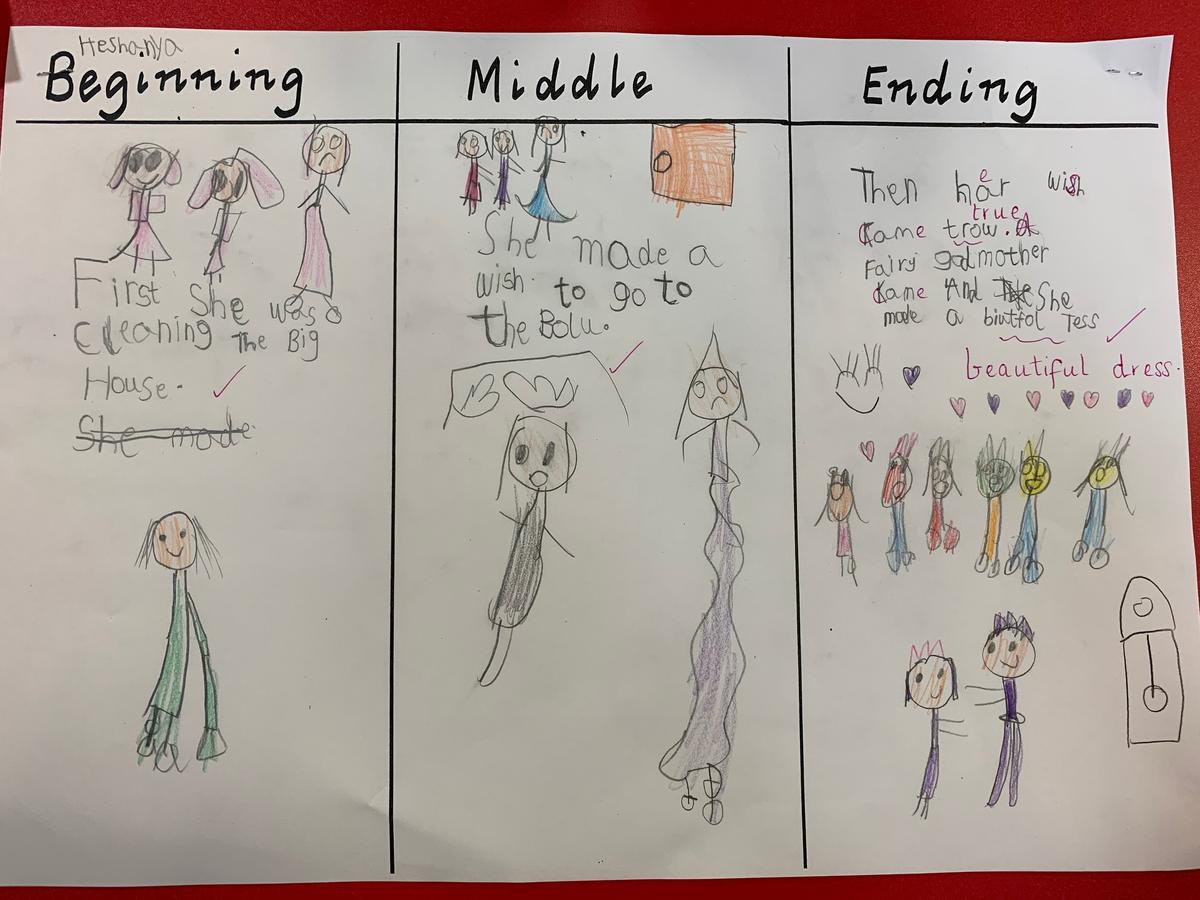 Heshanya
Beginning
First She was a
Cleaning The Big
House.
She made
Middle
She made a
wish. to go to
the Bolu.
Ending
Then har wish
e
true
Kame trow.
Fairy godmother
Kame And The She
made a biutfol Tess
beautiful dress.